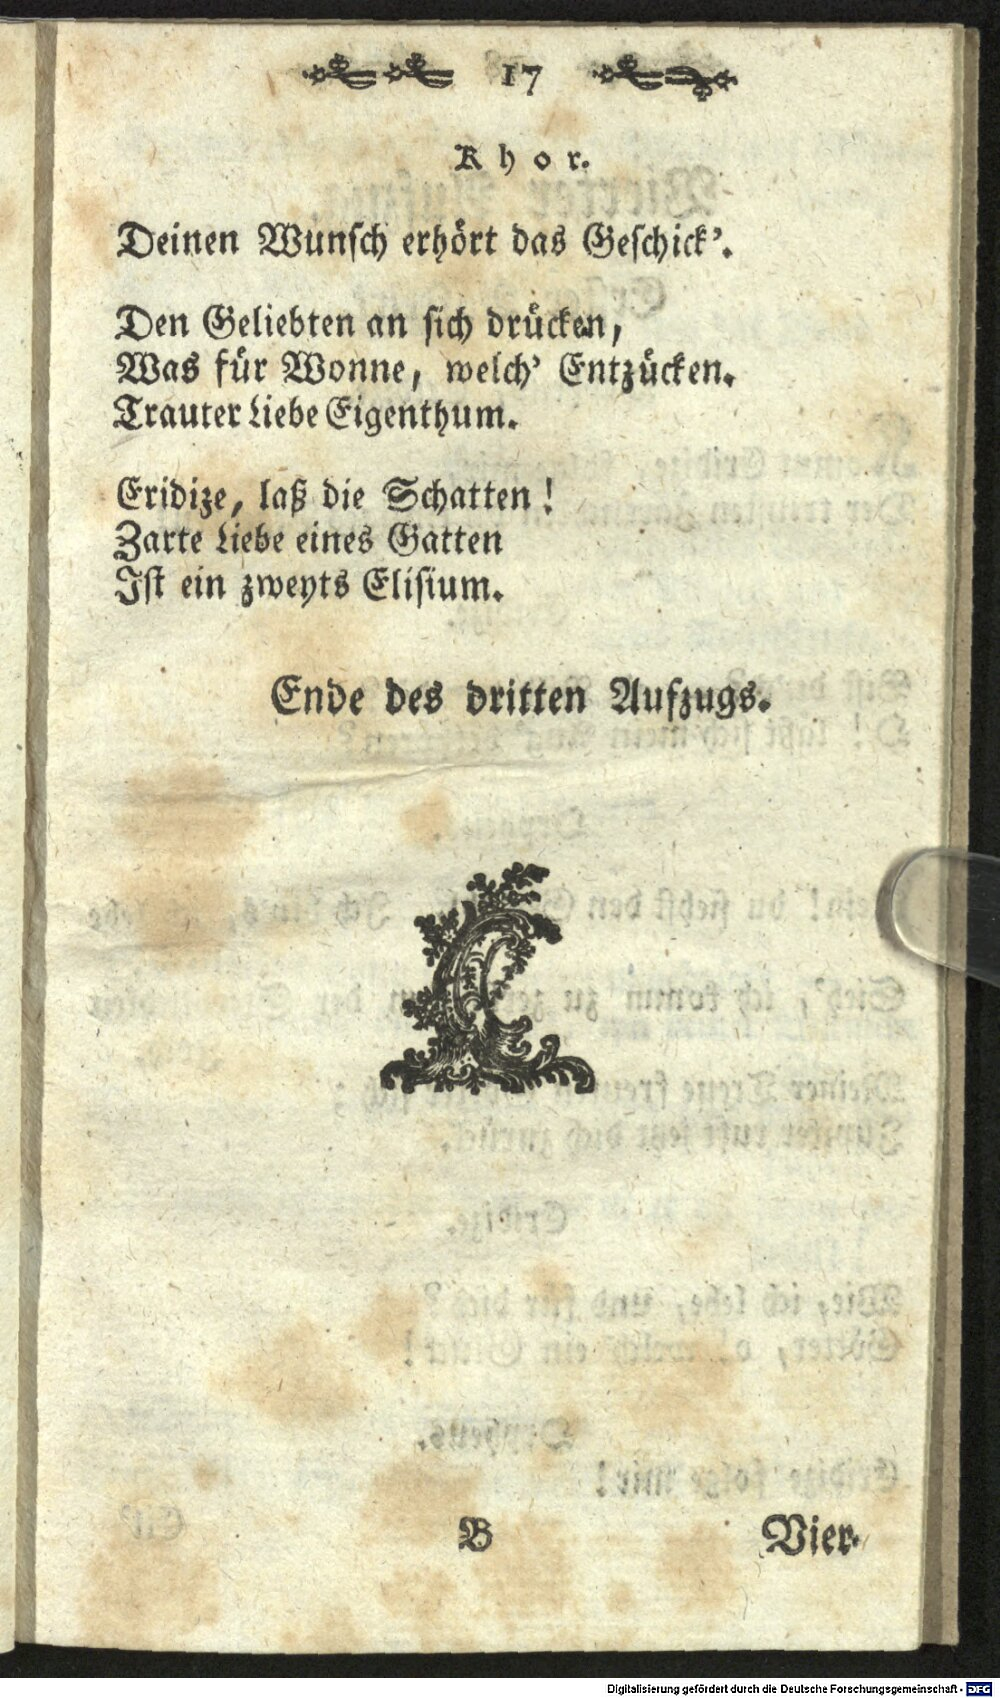 17
Khor.
Deinen Wunsch erhört das Geschick'.
Den Geliebten an sich drücken,
Was für Wonne, welch' Entzücken.
Trauter Liebe Eigenthum.
Eridize, laß die Schatten!
Zarte Liebe eines Gatten
Ist ein zweyts Elisium.
Ende des dritten Aufzugs.
B Vier-
Digitalisierung gefördert durch die Deutsche Forschungsgemeinschaft - DFG